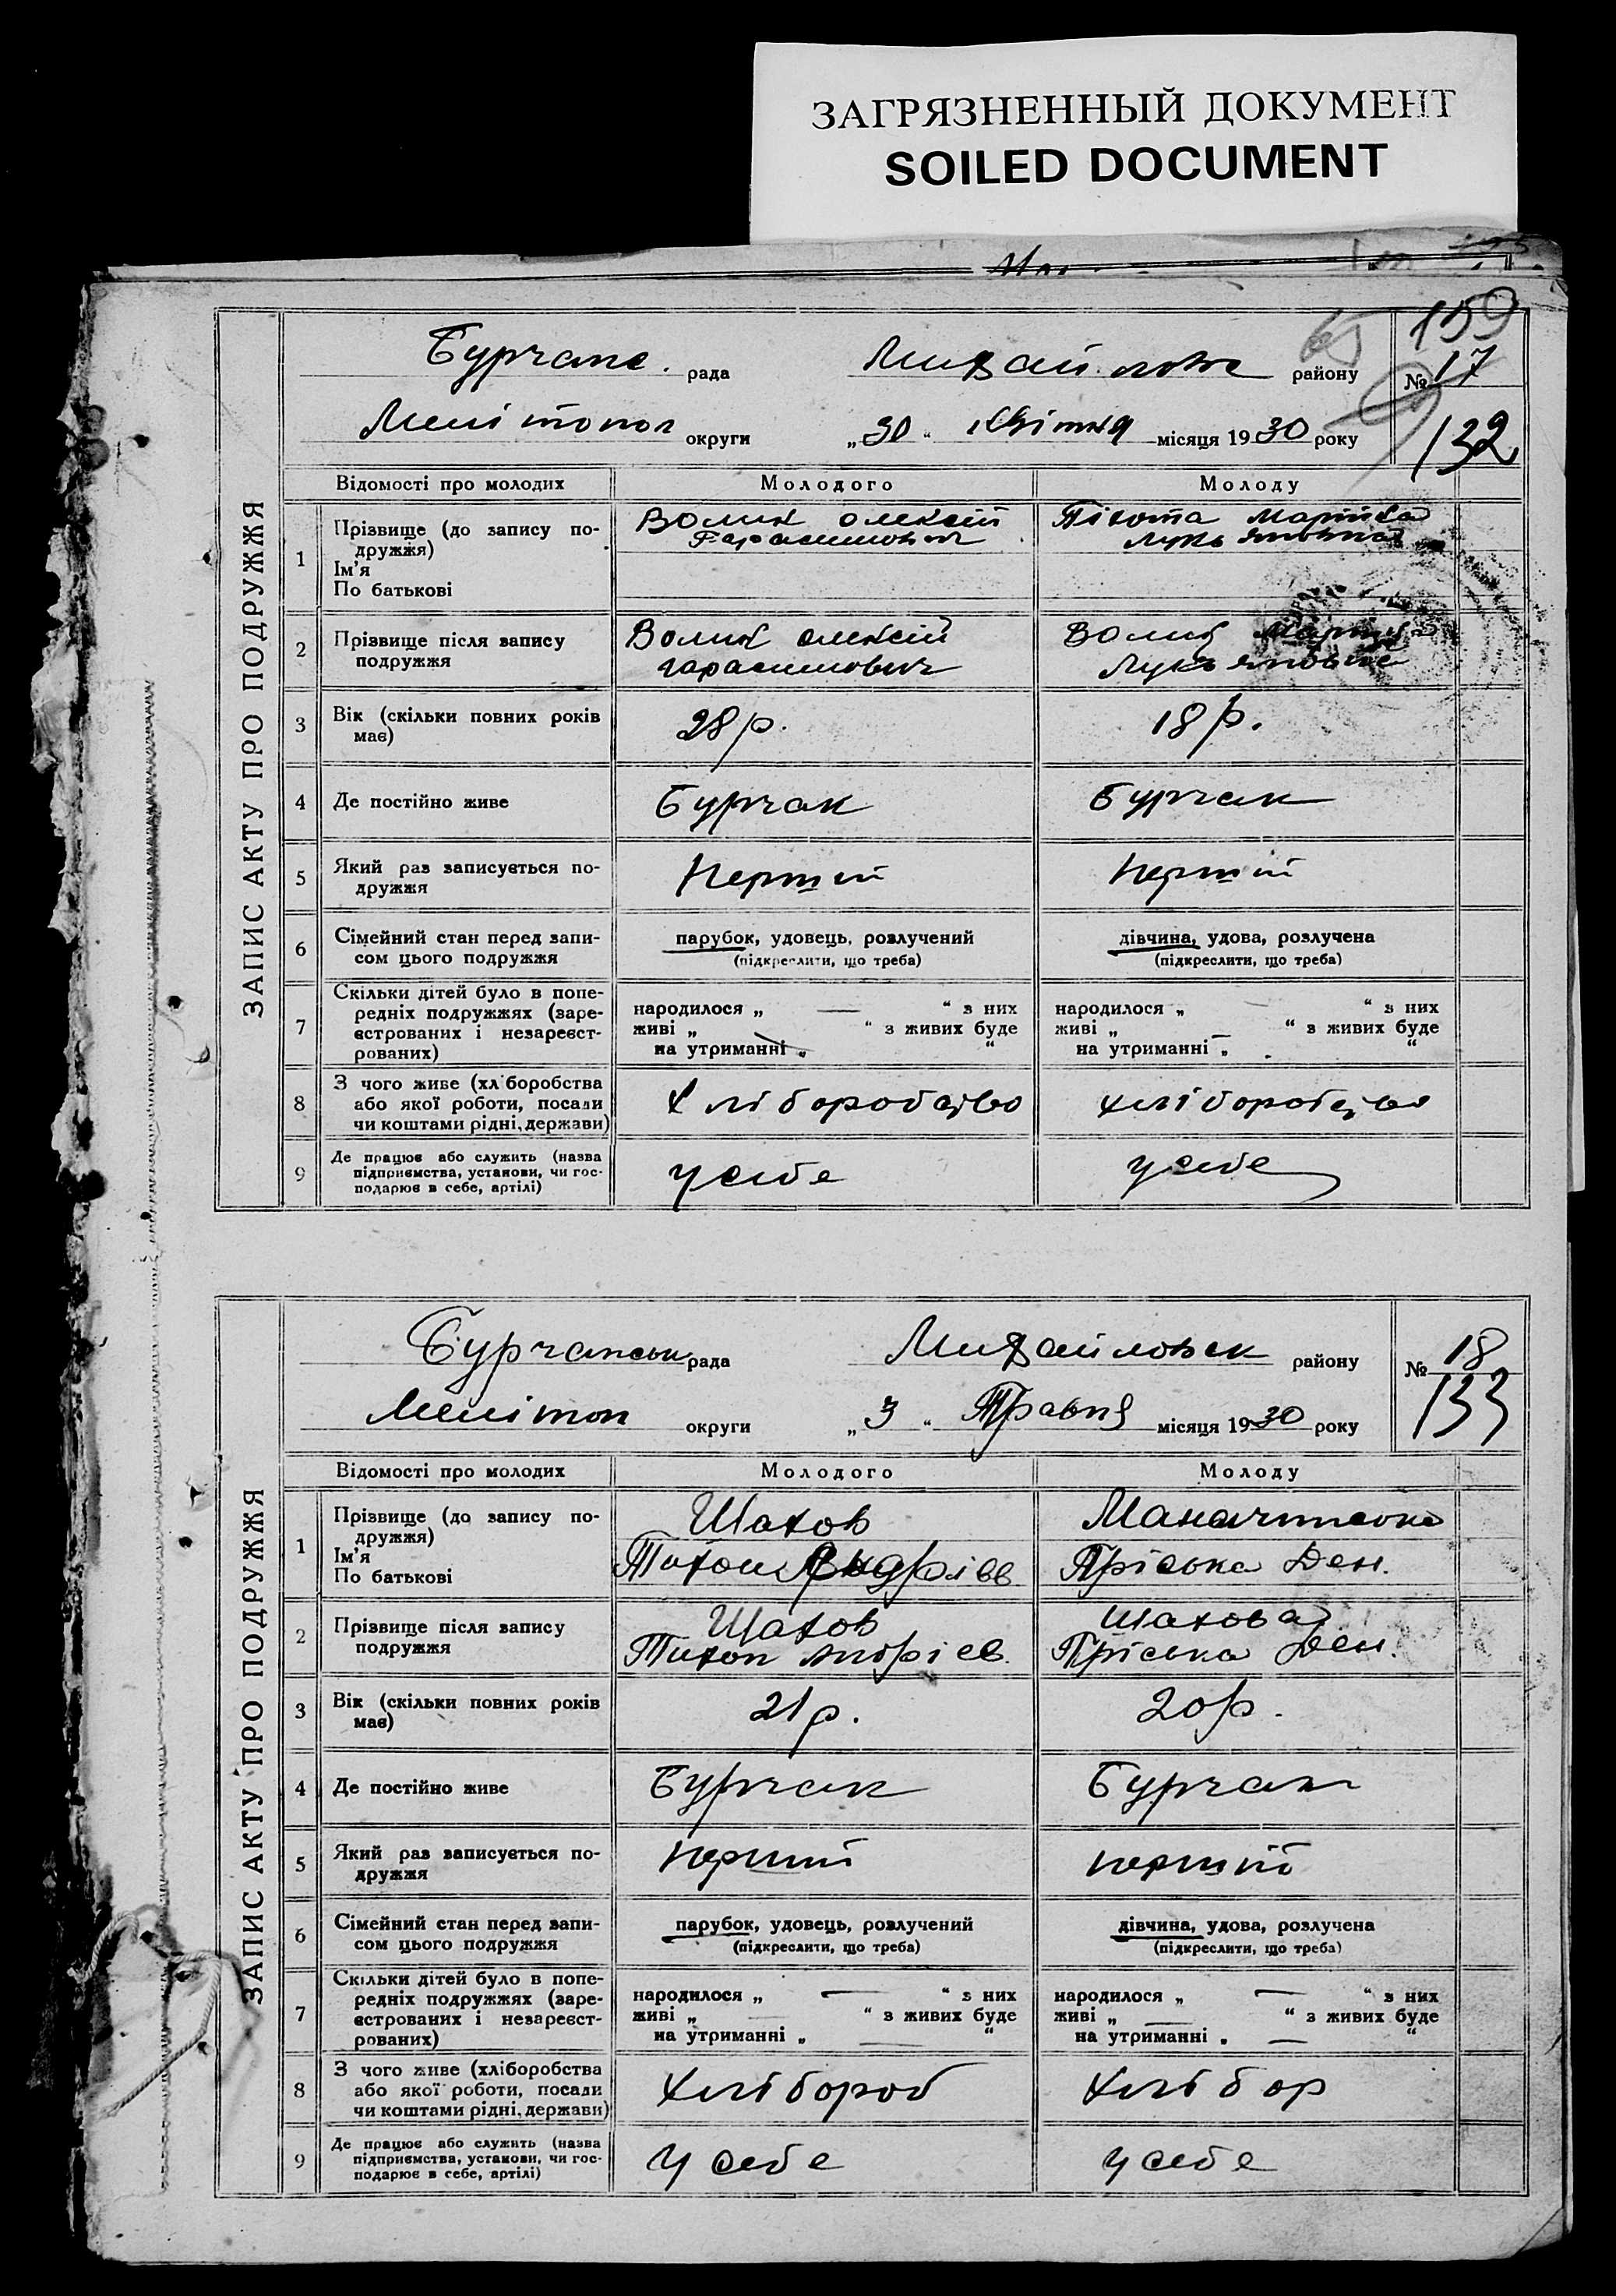 ЗАГРЯЗНЕННЫЙ ДОКУМЕНТ
SOILED DOCUMENT
159
ЗАПИС АКТУ ПРО ПОДРУЖЖЯ
Бурчанс. рада Михайловс району № 17
Мелітопол округи „30“ Квітня місяця 1930 року 132
Відомості про молодих Молодого Молоду
1 Прізвище (до запису подружжя) Волик Олексій Пікота
Ім'я Гарасимович Лукьяновна
По батькові
2 Прізвище після запису Волик Олексій Волик
подружжя Гарасимович Лукьяновна
3 Вік (скільки повних років 28 р. 18 р.
має)
4 Де постійно живе Бурчак Бурчак
5 Який раз записується по- Перший Перший
дружжя
6 Сімейний стан перед запи- парубок, удовець, розлучений дівчина, удова, розлучена
сом цього подружжя (підкреслити, що треба) (підкреслити, що треба)
7 Скільки дітей було в попе-
редніх подружжях (заре- народилося „ — “ з них народилося „ — “ з них
єстрованих і незареєст- живі „ “ з живих буде живі „ — “ з живих буде
рованих) на утриманні „ “ на утриманні „ “
8 З чого живе (хліборобства
або якої роботи, посади Хліборобство хліборобство
чи коштами рідні, держави)
9 Де працює або служить (назва
підприємства, установи, чи гос- у себе у себе
подарює в себе, артілі)
ЗАПИС АКТУ ПРО ПОДРУЖЖЯ
Бурчанськ рада Михайловск району № 18
Мелітоп округи „3“ Травня місяця 1930 року 133
Відомості про молодих Молодого Молоду
1 Прізвище (до запису по- Шахов
дружжя)
Ім'я Тихон Андрієв Пріська Дем.
По батькові
2 Прізвище після запису Шахов Шахова
подружжя Тихон Андрієв. Пріська Дем.
3 Вік (скільки повних років 21 р. 20 р.
має)
4 Де постійно живе Бурчак Бурчак
5 Який раз записується по- перший перший
дружжя
6 Сімейний стан перед запи- парубок, удовець, розлучений дівчина, удова, розлучена
сом цього подружжя (підкреслити, що треба) (підкреслити, що треба)
7 Скільки дітей було в попе-
редніх подружжях (заре- народилося „ — “ з них народилося „ — “ з них
єстрованих і незареєст- живі „ — “ з живих буде живі „ — “ з живих буде
рованих) на утриманні „ — “ на утриманні „ — “
8 З чого живе (хліборобства
або якої роботи, посади Хлібороб Хлібор
чи коштами рідні, держави)
9 Де працює або служить (назва
підприємства, установи, чи гос- у себе у себе
подарює в себе, артілі)